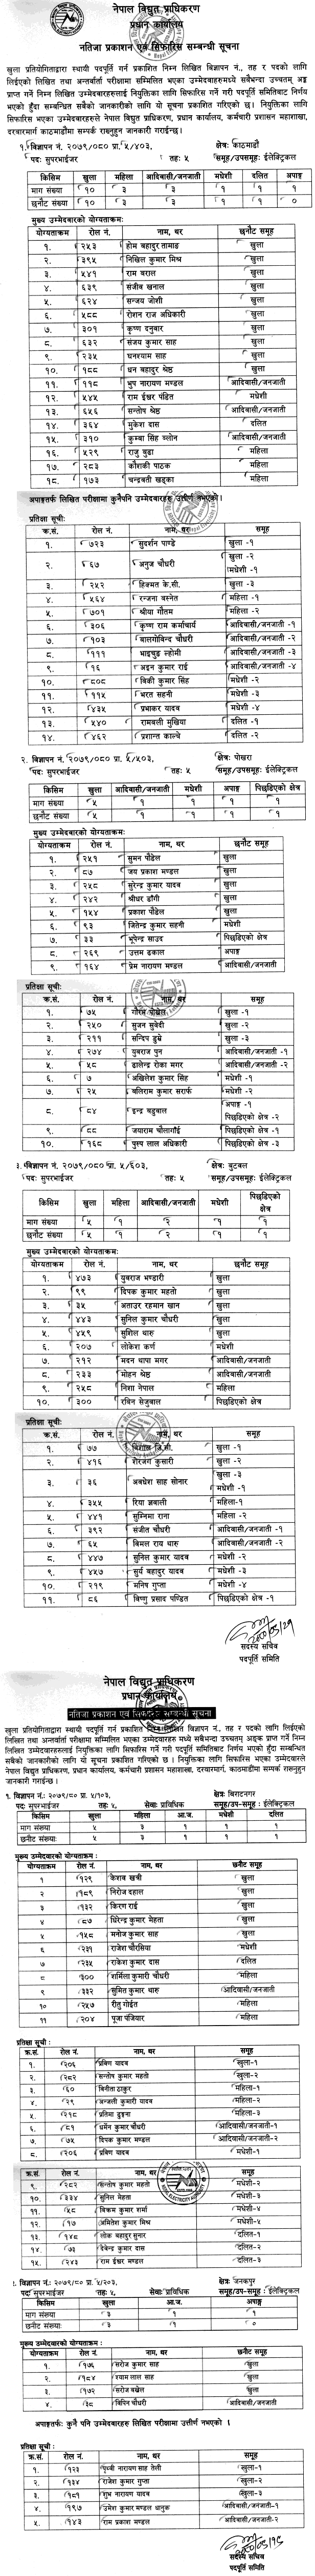 नेपाल विद्युत प्राधिकरण
प्रधान कार्यालय
नतिजा प्रकाशन एवं सिफारिस सम्बन्धी सूचना
खुला प्रतियोगिताद्वारा स्थायी पदपूर्ति गर्न प्रकाशित निम्न लिखित विज्ञापन नं., तह र पदको लागि
लिईएको लिखित तथा अन्तर्वार्ता परीक्षामा सम्मिलित भएका उम्मेदवारहरुमध्ये सबैभन्दा उच्चतम् अङ्क
प्राप्त गर्ने निम्न लिखित उम्मेदवारहरुलाई नियुक्तिका लागि सिफारिस गर्ने गरी पदपूर्ति समितिबाट निर्णय
भएको हुँदा सम्बन्धित सबैको जानकारीको लागि यो सूचना प्रकाशित गरिएको छ । नियुक्तिका लागि
सिफारिस भएका उम्मेदवारहरुले नेपाल विद्युत प्राधिकरण, प्रधान कार्यालय, कर्मचारी प्रशासन महाशाखा,
दरवारमार्ग काठमाडौंमा सम्पर्क राख्नुहुन जानकारी गराईन्छ ।
१. विज्ञापन नं. २०७९/०८० प्रा. ५/४०३, क्षेत्र: काठमाडौं
पद: सुपरभाईजर तह: ५ समूह/उपसमूह: ईलेक्ट्रिकल
किसिम खुला महिला आदिवासी/जनजाती मधेशी दलित अपाङ्ग
माग संख्या १० ३ ३ १ १ १
छनौट संख्या १० ३ ३ १ १ ०
मुख्य उम्मेदवारको योग्यताक्रम:
योग्यताक्रम रोल नं. नाम, थर छनौट समूह
१. २५३ होम बहादुर तामाङ खुला
२. ३९५ निखिल कुमार मिश्र खुला
३. ५४१ राम बराल खुला
४. ६३९ संजीव खनाल खुला
५. ६२४ सन्जय जोशी खुला
६. ५८८ रोशन राज अधिकारी खुला
७. ३०१ कृष्ण दनुवार खुला
८. ६३२ संजय कुमार साह खुला
९. २३५ घनश्याम साह खुला
१०. १८८ धन बहादुर श्रेष्ठ खुला
११. ११८ भुप नारायण मण्डल आदिवासी/जनजाती
१२. ५४५ राम ईश्वर पंडित मधेशी
१३. ६५६ सन्तोष श्रेष्ठ आदिवासी/जनजाती
१४. ३६४ मुकेश दास दलित
१५. ३१० कुम्वा सिंह ब्लोन आदिवासी/जनजाती
१६. ५२९ राजु बुढा महिला
१७. २८३ कौशकी पाठक महिला
१८. १७३ चन्द्रवती खड्का महिला
अपाङ्गतर्फ लिखित परीक्षामा कुनैपनि उम्मेदवारहरु उत्तीर्ण नभएको ।
प्रतिक्षा सूचि:
क्र.सं. रोल नं. नाम, थर समूह
१. ७२३ सुदर्शन पाण्डे खुला -१
२. ६७ अनुज चौधरी खुला -२
मधेशी -१
३. २५२ हिक्मत के.सी. खुला -३
४. ५६४ रन्जना बस्नेत महिला -१
५. ७०१ श्रीया गौतम महिला -२
६. ३०६ कृष्ण राम कर्माचार्य आदिवासी/जनजाती -१
७. १०३ बालगोविन्द चौधरी आदिवासी/जनजाती -२
८. १११ भाइचुङ ल्होमी आदिवासी/जनजाती -३
९. १६ अइन कुमार राई आदिवासी/जनजाती -४
१०. ८०८ विकी कुमार सिंह मधेशी -२
११. ११५ भरत सहनी मधेशी -३
१२. ४३५ प्रभाकर यादव मधेशी -४
१३. ५४० रामवली मुखिया दलित -१
१४. ४६२ प्रशान्त काल्चे दलित -२
२. विज्ञापन नं. २०७९/०८० प्रा. ५/५०३, क्षेत्र: पोखरा
पद: सुपरभाईजर तह: ५ समूह/उपसमूह: ईलेक्ट्रिकल
किसिम खुला आदिवासी/जनजाती मधेशी अपाङ्ग पिछडिएको क्षेत्र
माग संख्या ५ १ १ १ १
छनौट संख्या ५ १ १ १ १
मुख्य उम्मेदवारको योग्यताक्रम:
योग्यताक्रम रोल नं. नाम, थर छनौट समूह
१. २५१ सुमन पौडेल खुला
२. ८७ जय प्रकाश मण्डल खुला
३. २५८ सुरेन्द्र कुमार यादव खुला
४. २४२ श्रीधर डाँगी खुला
५. १५४ प्रकाश पौडेल खुला
६. ९३ जितेन्द्र कुमार सहनी मधेशी
७. ३३ भूपेन्द्र साउद पिछडिएको क्षेत्र
८. २६९ उत्तम ढकाल अपाङ्ग
९. १६४ प्रेम नारायण मण्डल आदिवासी/जनजाती
प्रतिक्षा सूचि:
क्र.सं. रोल नं. नाम, थर समूह
१. ७५ गौरव पोख्रेल खुला -१
२. २५० सुजन सुवेदी खुला -२
३. २११ सन्दिप डुम्रे खुला -३
४. २७४ युवराज पुन आदिवासी/जनजाती -१
५. ५८ डालेन्द्र रोका मगर आदिवासी/जनजाती -२
६. ७ अखिलेश कुमार सिंह मधेशी -१
७. २५ बलिराम कुमार सरार्फ मधेशी -२
८. ८४ इन्द्र बडुवाल अपाङ्ग -१
पिछडिएको क्षेत्र -२
९. ८८ जयाराम चौलागाँई पिछडिएको क्षेत्र -१
१०. १६८ पुस्प लाल अधिकारी पिछडिएको क्षेत्र -३
३. विज्ञापन नं. २०७९/०८० प्रा. ५/६०३, क्षेत्र: बुटवल
पद: सुपरभाईजर तह: ५ समूह/उपसमूह: ईलेक्ट्रिकल
किसिम खुला महिला आदिवासी/जनजाती मधेशी पिछडिएको क्षेत्र
माग संख्या ५ १ २ १ १
छनौट संख्या ५ १ २ १ १
मुख्य उम्मेदवारको योग्यताक्रम:
योग्यताक्रम रोल नं. नाम, थर छनौट समूह
१. ४७३ युवराज भण्डारी खुला
२. ९९ दिपक कुमार महतो खुला
३. ३५ अताउर रहमान खान खुला
४. ४४३ सुनिल कुमार चौधरी खुला
५. ४५९ सुशिल थारु खुला
६. २०७ लोकेश कर्ण मधेशी
७. २१२ मदन थापा मगर आदिवासी/जनजाती
८. २३३ मोहन श्रेष्ठ आदिवासी/जनजाती
९. २५८ निशा नेपाल महिला
१०. ३०० रविन सेजुवाल पिछडिएको क्षेत्र
प्रतिक्षा सूचि:
क्र.सं. रोल नं. नाम, थर समूह
१. ७७ बिशाल जि.सी. खुला -१
२. ४१६ शेरजंग कुसारी खुला -२
३. ३६ अवधेश साह सोनार खुला -३
मधेशी -१
४. ३५५ रिया ज्ञवाली महिला-१
५. ४४१ सुम्निमा राना महिला -२
६. ३९२ संजीत चौधरी आदिवासी/जनजाती -१
७. ६५ बिमल राय थारु आदिवासी/जनजाती -२
८. ४४७ सुनिल कुमार यादव मधेशी -२
९. ४५७ सुर्य बहादुर यादव मधेशी -३
१०. २१९ मनिष गुप्ता मधेशी -४
११. ८६ विष्णु प्रसाद पण्डित पिछडिएको क्षेत्र -१
सदस्य सचिव
पदपूर्ति समिति
नेपाल विद्युत प्राधिकरण
प्रधान कार्यालय
नतिजा प्रकाशन एवं सिफारिस सम्बन्धी सूचना
खुला प्रतियोगिताद्वारा स्थायी पदपूर्ति गर्न प्रकाशित निम्न लिखित विज्ञापन नं., तह र पदको लागि लिईएको
लिखित तथा अन्तर्वार्ता परीक्षामा सम्मिलित भएका उम्मेदवारहरु मध्ये सबैभन्दा उच्चतम् अङ्क प्राप्त गर्ने निम्न
लिखित उम्मेदवारहरुलाई नियुक्तिका लागि सिफारिस गर्ने गरी पदपूर्ति समितिबाट निर्णय भएको हुँदा सम्बन्धित
सबैको जानकारीको लागि यो सूचना प्रकाशित गरिएको छ । नियुक्तिका लागि सिफारिस भएका उम्मेदवारले
नेपाल विद्युत प्राधिकरण, प्रधान कार्यालय, कर्मचारी प्रशासन महाशाखा, दरवारमार्ग, काठमाडौंमा सम्पर्क राख्नुहुन
जानकारी गराईन्छ ।
१. विज्ञापन नं.: २०७९/८० प्रा. ५/१०३, क्षेत्र: बिराटनगर
पद: सुपरभाईजर तह: ५, सेवा: प्राविधिक समूह/उप-समूह : ईलेक्ट्रिकल
किसिम खुला महिला आ.ज. मधेशी दलित
माग संख्या ५ ३ १ १ १
छनौट संख्या ५ ३ १ १ १
मुख्य उम्मेदवारको योग्यताक्रम :
योग्यताक्रम रोल नं. नाम, थर छनौट समूह
१ १२९ केशव खत्री खुला
२ १८९ निरोज दहाल खुला
३ १३२ किरण राई खुला
४ ८७ धिरेन्द्र कुमार मेहता खुला
५ १५८ मनोज कुमार साह खुला
६ २३१ राजेश चौरसिया मधेशी
७ २३५ राकेश कुमार दास दलित
८ ३०० शर्मिला कुमारी चौधरी महिला
९ ३३२ सुमित कुमार थारु आदिवासी/जनजाती
१० २५७ रीतु गोईत महिला
११ २०४ पूजा पंजियार महिला
प्रतिक्षा सूची :
क्र.सं. रोल नं. नाम, थर समूह
१. २०६ प्रविण यादव खुला-१
२. २८२ सन्तोष कुमार महतो खुला-२
३. ६० बिनीता ठाकुर महिला-१
४. २९ अन्जली कुमारी यादव महिला-२
५. २१८ प्रतिमा ढुङ्गना महिला-३
६. ८१ धर्मेन कुमार चौधरी आदिवासी/जनजाती-१
७. ७५ दिपक कुमार मण्डल आदिवासी/जनजाती-२
८. २०६ प्रविण यादव मधेशी-१
९. २८२ सन्तोष कुमार महतो मधेशी-२
१०. ३३४ सुनिल मेहता मधेशी-३
११. ५८ विक्रम कुमार शर्मा मधेशी-४
१२. १७ अमितेश कुमार मिश्र मधेशी-५
१३. १४८ लोक बहादुर सुनार दलित-१
१४. ७३ देवेन्द्र कुमार दास दलित-२
१५. २४३ राम ईश्वर मण्डल दलित-३
२. विज्ञापन नं.: २०७९/८० प्रा. ५/२०३, क्षेत्र: जनकपुर
पद: सुपरभाईजर तह: ५, सेवा: प्राविधिक समूह/उप-समूह : ईलेक्ट्रिकल
किसिम खुला आ.ज. अपाङ्ग
माग संख्या ३ १ १
छनौट संख्या: ३ १ ०
मुख्य उम्मेदवारको योग्यताक्रम :
योग्यताक्रम रोल नं. नाम, थर छनौट समूह
१. १७६ सरोज कुमार साह खुला
२. १८४ श्याम लाल साह खुला
३. १७२ सरोज बख्रेल खुला
४. ३८ बिपिन चौधरी आदिवासी/जनजाती
अपाङ्गतर्फ: कुनै पनि उम्मेदवारहरु लिखित परीक्षामा उत्तीर्ण नभएको ।
प्रतिक्षा सूची :
क्र.सं. रोल नं. नाम, थर समूह
१. १२३ पृथ्वी नारायण साह तेली खुला-१
२. १३४ राजेश कुमार गुप्ता खुला-२
३. १८१ शुभ नारायण यादव खुला-३
४. १९७ उमेश कुमार मण्डल धानुक आदिवासी/जनजाती-१
५. १४३ राम प्रकाश मण्डल आदिवासी/जनजाती-२
सदस्य सचिव
पदपूर्ति समिति